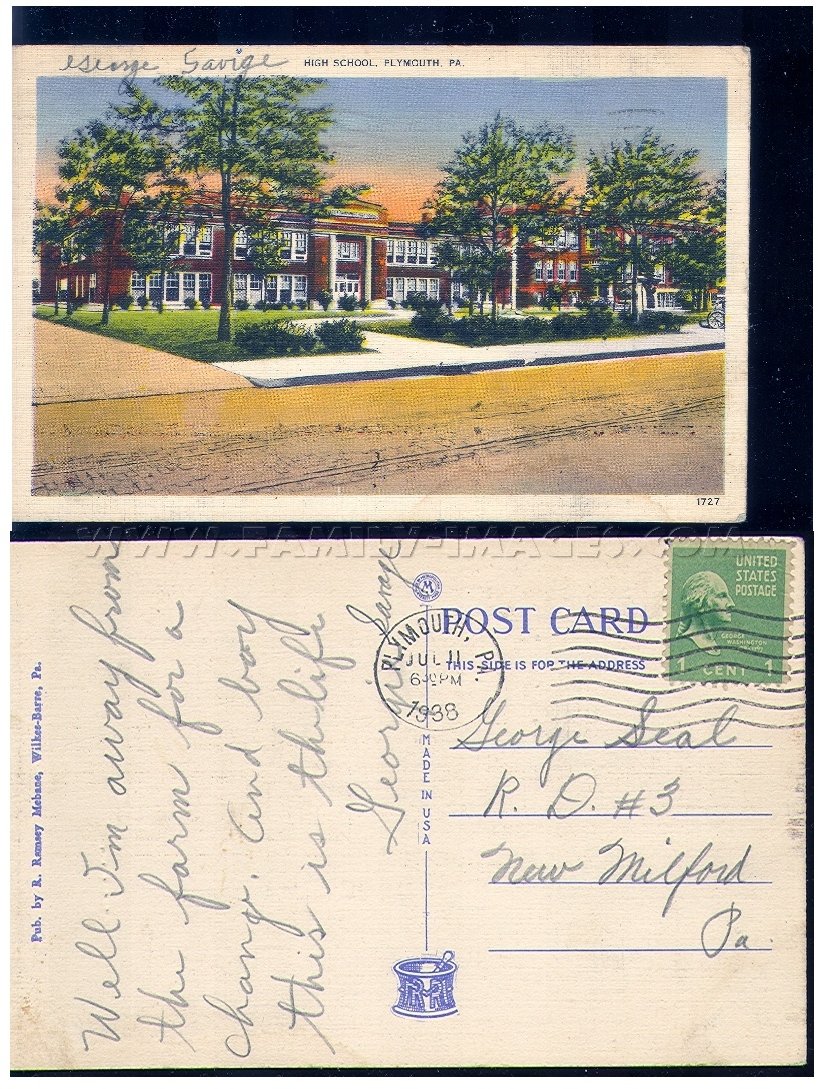 George Savige
HIGH SCHOOL, PLYMOUTH, PA.
1727
WWW.FAMILY-IMAGES.COM
Pub. by R. Ramsey Mebane, Wilkes-Barre, Pa.
Well I'm away from
the farm for a
change. And boy
this is the life
George Savige
POST CARD
THIS SIDE IS FOR THE ADDRESS
PLYMOUTH, PA.
JUL 11
6 30 PM
1938
UNITED
STATES
POSTAGE
GEORGE WASHINGTON
1 CENT 1
MADE IN USA
George Seal
R. D. #3
New Milford
Pa